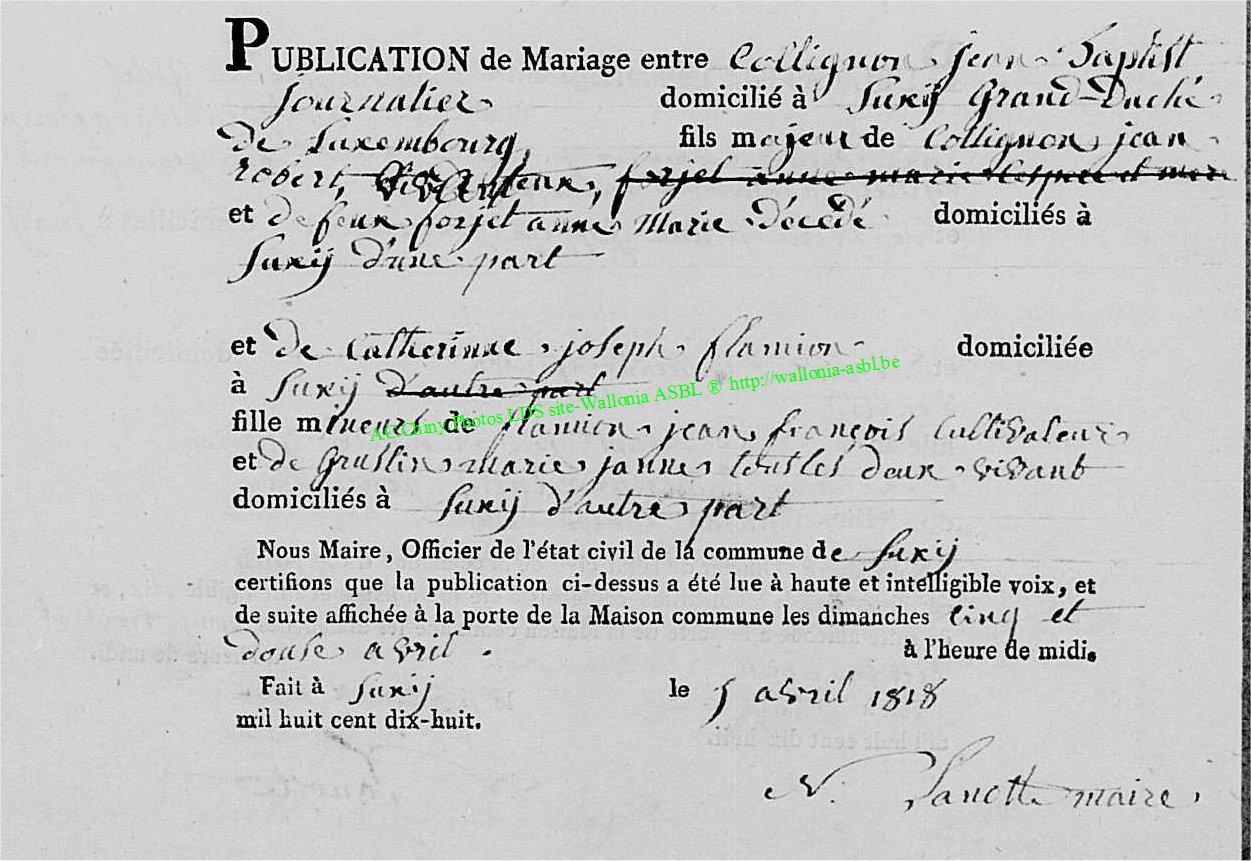 PUBLICATION de Mariage entre Collignon jean Baptist
journalier domicilié à Suxij Grand-Duché
de Luxembourg, fils majeur de Collignon jean
robert, forjet anne marie
et de feux forjet anne Marie Décédé domiciliés à
Suxij d'une part
et de Catherinne joseph flamion domiciliée
à Suxij d'autre part
AGChiny Photos LDS site-Wallonia ASBL ® http://wallonia-asbl.be
fille mineurt de flamion jean françois Cultivateur
et de Gruslin marie janne tout les deux vivant
domiciliés à Suxij d'autre part
Nous Maire, Officier de l'état civil de la commune de Suxij
certifions que la publication ci-dessus a été lue à haute et intelligible voix, et
de suite affichée à la porte de la Maison commune les dimanches Cinq et
douse avril. à l'heure de midi.
Fait à Suxij le 5 avril 1818
mil huit cent dix-huit.
N. maire